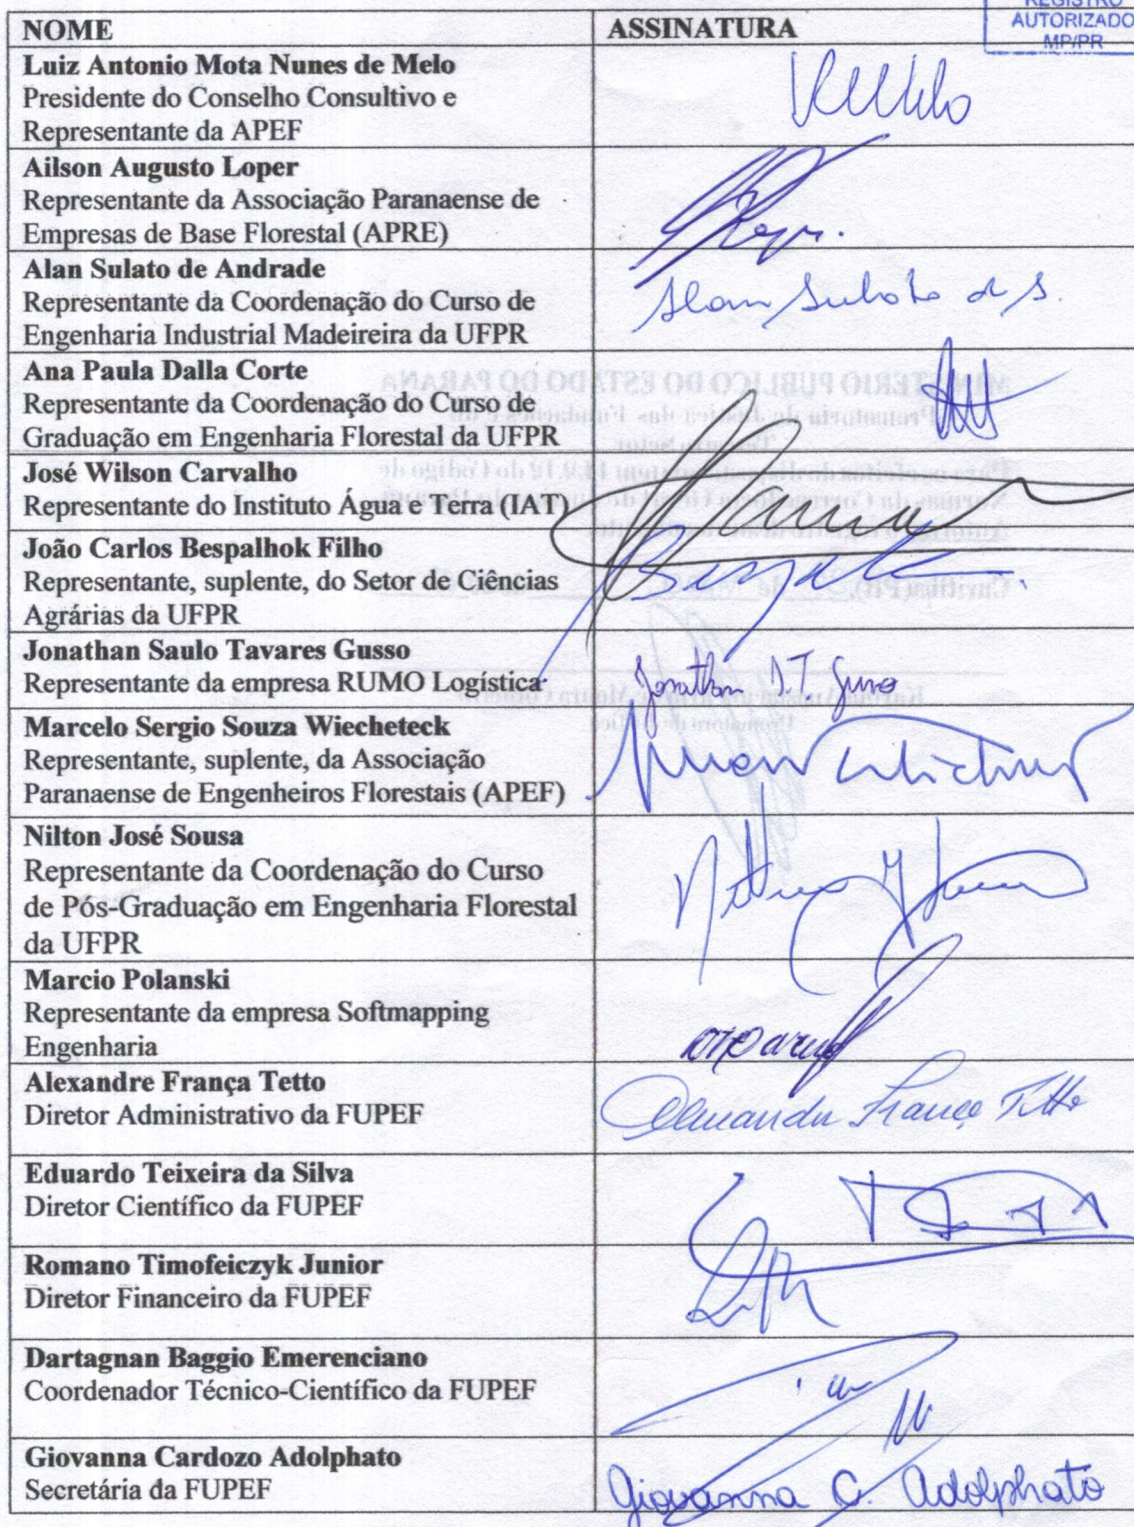 REGISTRO
AUTORIZADO
MP/PR
NOME ASSINATURA
Luiz Antonio Mota Nunes de Melo
Presidente do Conselho Consultivo e
Representante da APEF
Ailson Augusto Loper
Representante da Associação Paranaense de
Empresas de Base Florestal (APRE)
Alan Sulato de Andrade
Representante da Coordenação do Curso de
Engenharia Industrial Madeireira da UFPR
Alan Sulato de S.
Ana Paula Dalla Corte
Representante da Coordenação do Curso de
Graduação em Engenharia Florestal da UFPR
José Wilson Carvalho
Representante do Instituto Água e Terra (IAT)
João Carlos Bespalhok Filho
Representante, suplente, do Setor de Ciências
Agrárias da UFPR
Jonathan Saulo Tavares Gusso
Representante da empresa RUMO Logística
Jonathan S.T. Gusso
Marcelo Sergio Souza Wiecheteck
Representante, suplente, da Associação
Paranaense de Engenheiros Florestais (APEF)
Nilton José Sousa
Representante da Coordenação do Curso
de Pós-Graduação em Engenharia Florestal
da UFPR
Marcio Polanski
Representante da empresa Softmapping
Engenharia
Alexandre França Tetto
Diretor Administrativo da FUPEF
Alexandre França Tetto
Eduardo Teixeira da Silva
Diretor Científico da FUPEF
Romano Timofeiczyk Junior
Diretor Financeiro da FUPEF
Dartagnan Baggio Emerenciano
Coordenador Técnico-Científico da FUPEF
Giovanna Cardozo Adolphato
Secretária da FUPEF
Giovanna C. Adolphato